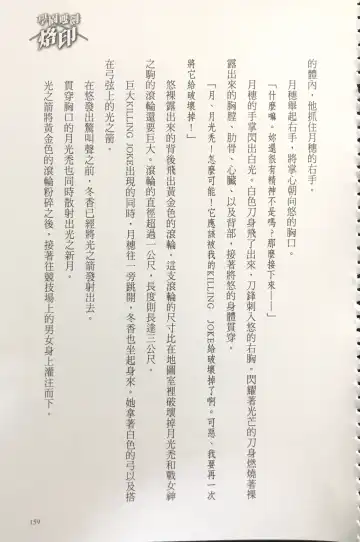 學園雙劍
烙印
的體內，他抓住月穗的右手。
月穗舉起右手，將掌心朝向悠的胸口。
「什麼嘛。妳還很有精神不是嗎？那麼接下來——」
月穗的手掌閃出白光。白色刀身飛了出來，刀鋒刺入悠的右胸。閃耀著光芒的刀身燃燒著裸
露出來的胸膛、肋骨、心臟、以及背部，接著將悠的身體貫穿。
「月、月光禿！怎麼可能！它應該被我的KILLING JOKE給破壞掉了啊。可惡、我要再一次
將它給破壞掉！」
悠裸露出來的背後飛出黃金色的滾輪，這支滾輪的尺寸比在地圖室裡破壞掉月光禿和戰女神
之駒的滾輪還要巨大。滾輪的直徑超過一公尺，長度則長達三公尺。
巨大KILLING JOKE出現的同時，月穗往一旁跳開，冬香也坐起身來。她拿著白色的弓以及搭
在弓弦上的光之箭。
在悠發出驚叫聲之前，冬香已經將光之箭發射出去。
貫穿胸口的月光禿也同時散射出光之新月。
光之箭將黃金色的滾輪粉碎之後，接著往競技場上的男女身上灌注而下。
159